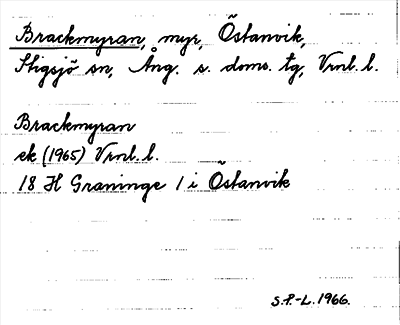 Brackmyran, myr, Östanvik,
Stigsjö sn, Ång. s. doms. tg, Vrnl. l.
Brackmyran
ek (1965) Vrnl. l.
18 H Graninge 1 i Östanvik
S.P.-L. 1966.